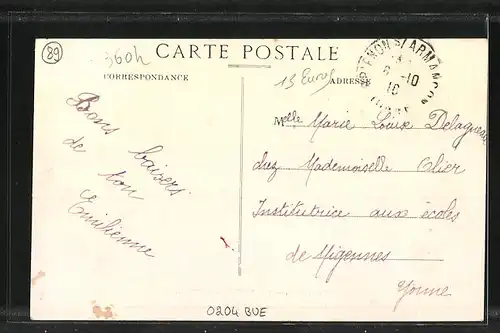 89
360h
CARTE POSTALE
CORRESPONDANCE
13 Euros
ADRESSE
BRIENON S/ ARMANÇON
6-10
10
Bons baisers
de ton
Emilienne
Melle Marie Louise Delagneau
chez Mademoiselle Olier
Institutrice aux écoles
de Migennes
Yonne
0204 BUE